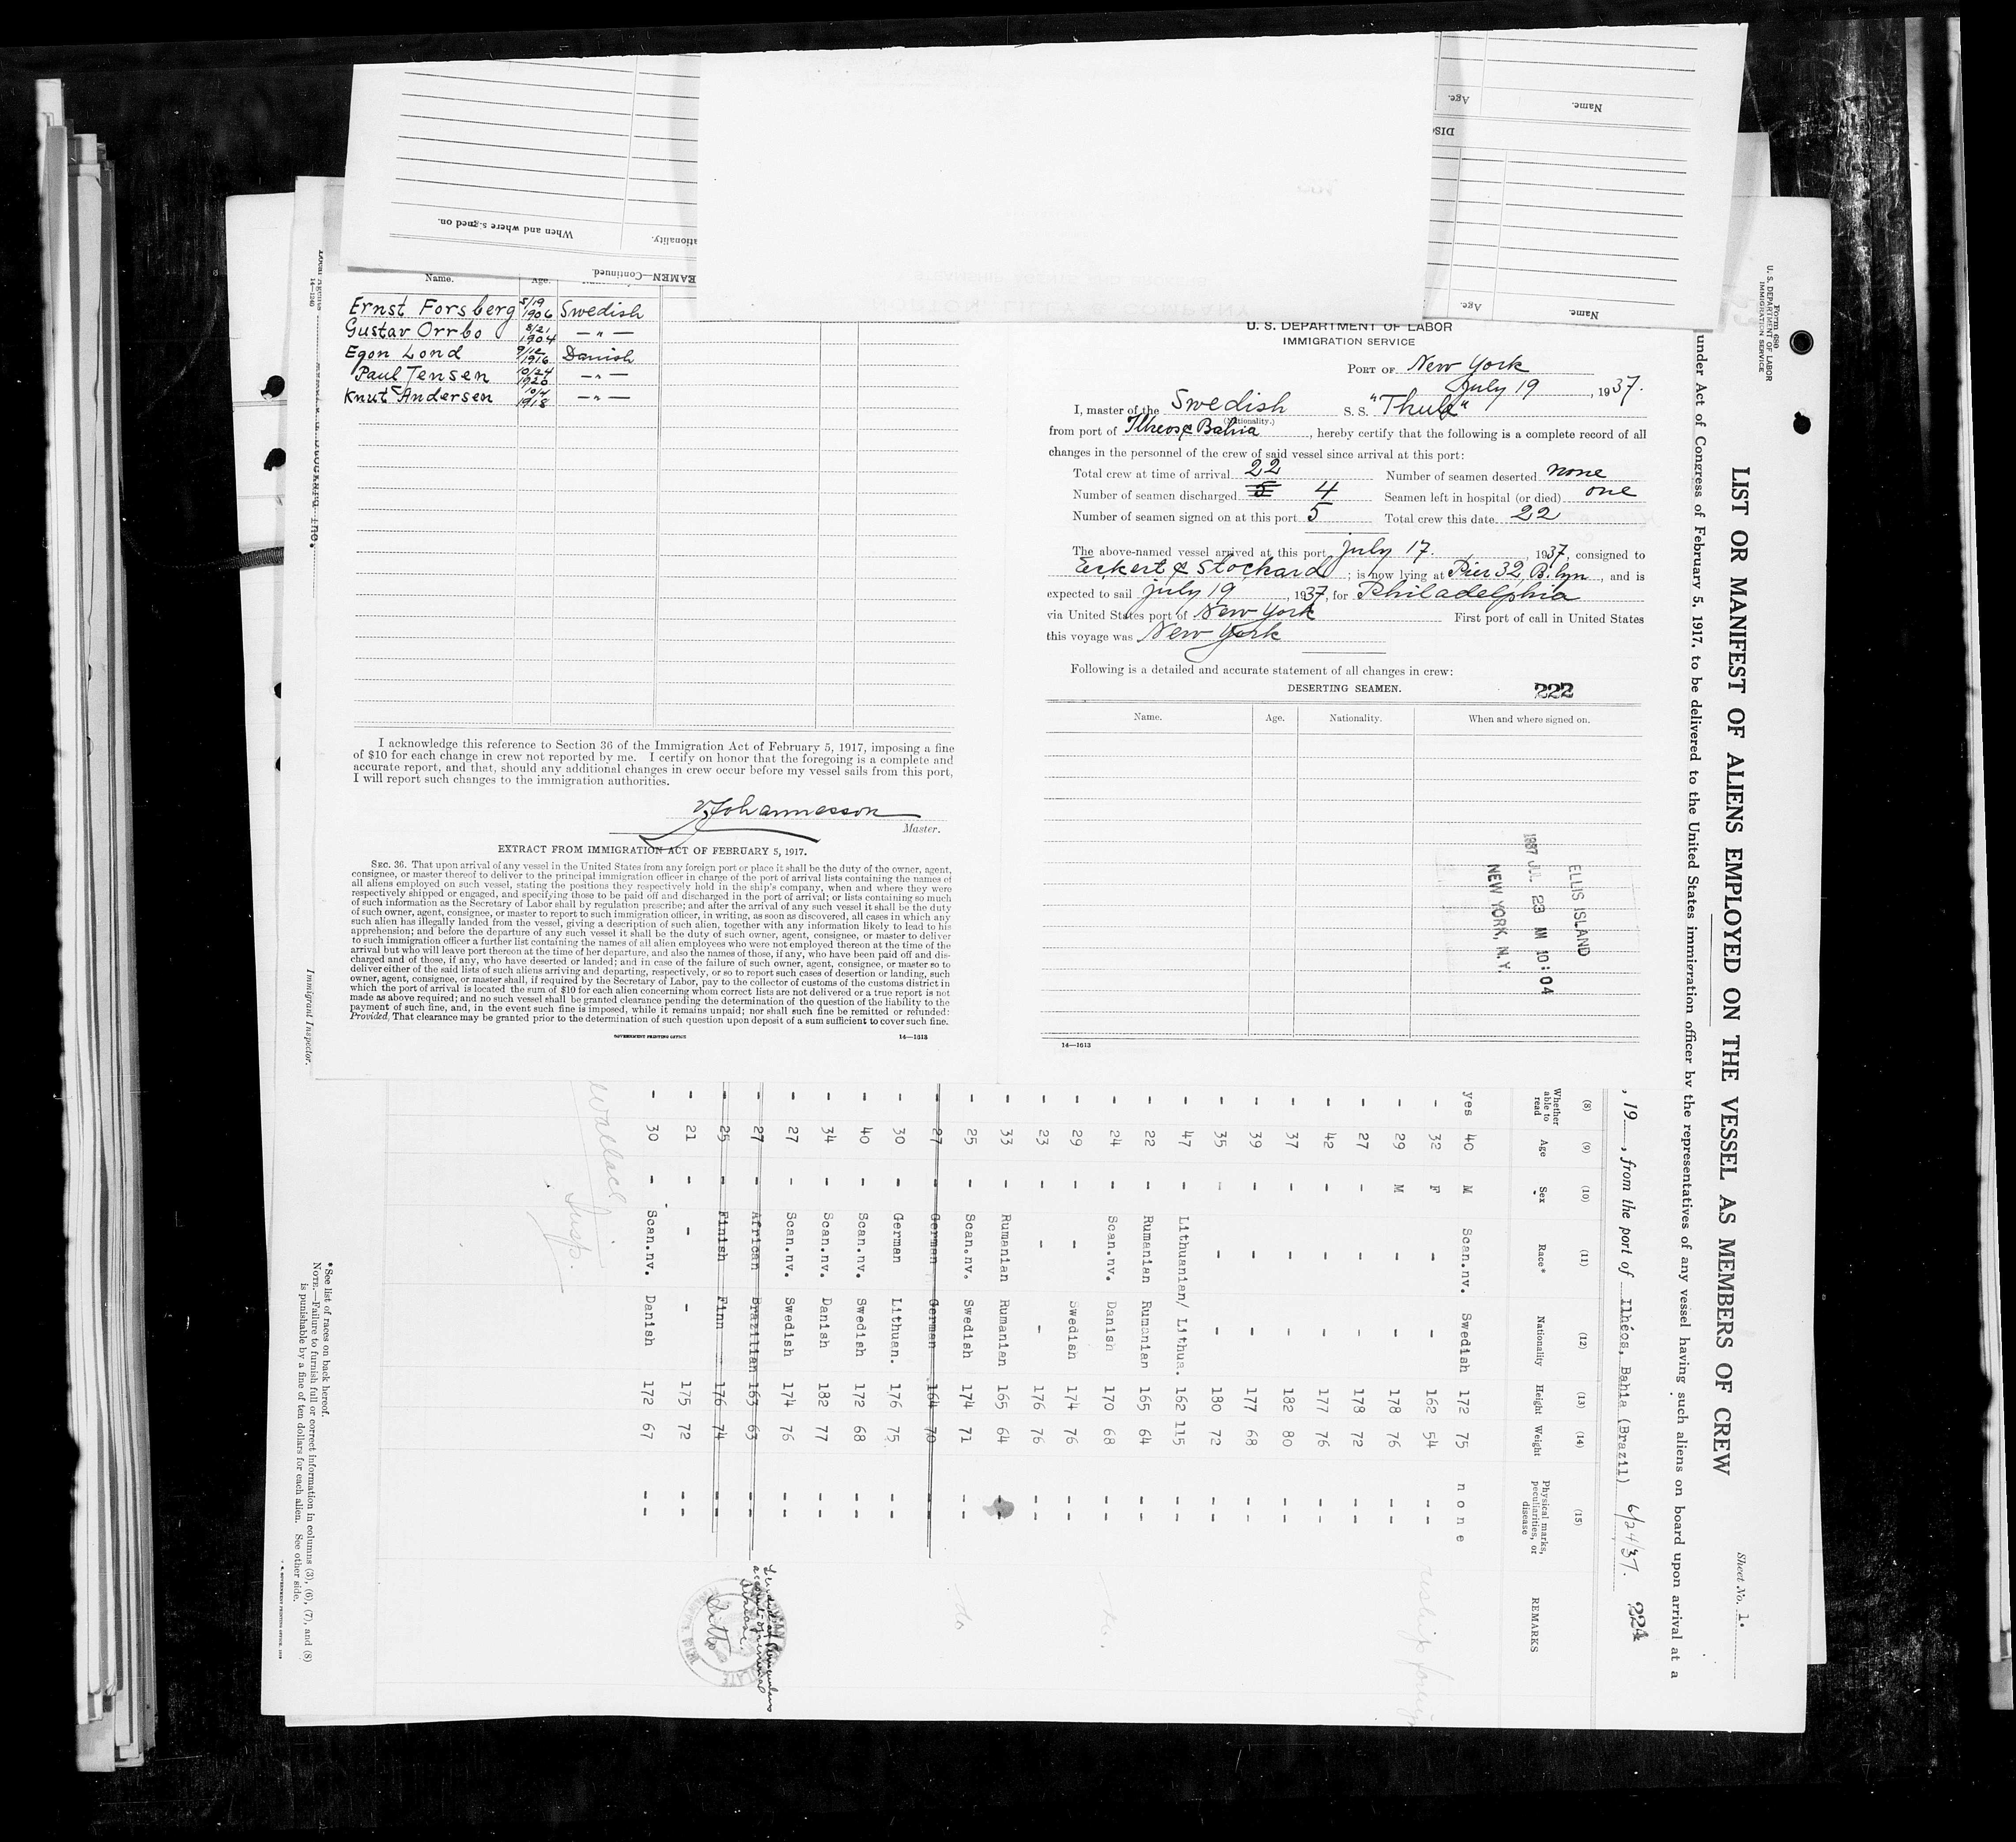 When and where signed on.
Name.
Age.
Name.
Age.
Ernst Forsberg 5/19 1906 Swedish
Gustav Orrbo 8/21 1904 — " —
Egon Lond 9/12 1916 Danish
Paul Jensen 10/24 1920 — " —
Knut Andersen 10/4 1918 — " —
I acknowledge this reference to Section 36 of the Immigration Act of February 5, 1917, imposing a fine
of $10 for each change in crew not reported by me. I certify on honor that the foregoing is a complete and
accurate report, and that, should any additional changes in crew occur before my vessel sails from this port,
I will report such changes to the immigration authorities.
Johannesson
Master.
EXTRACT FROM IMMIGRATION ACT OF FEBRUARY 5, 1917.
SEC. 36. That upon arrival of any vessel in the United States from any foreign port or place it shall be the duty of the owner, agent,
consignee, or master thereof to deliver to the principal immigration officer in charge of the port of arrival lists containing the names of
all aliens employed on such vessel, stating the positions they respectively hold in the ship's company, when and where they were
respectively shipped or engaged, and specifying those to be paid off and discharged in the port of arrival; or lists containing so much
of such information as the Secretary of Labor shall by regulation prescribe; and after the arrival of any such vessel it shall be the duty
of such owner, agent, consignee, or master to report to such immigration officer, in writing, as soon as discovered, all cases in which any
such alien has illegally landed from the vessel, giving a description of such alien, together with any information likely to lead to his
apprehension; and before the departure of any such vessel it shall be the duty of such owner, agent, consignee, or master to deliver
to such immigration officer a further list containing the names of all alien employees who were not employed thereon at the time of the
arrival but who will leave port thereon at the time of her departure, and also the names of those, if any, who have been paid off and dis-
charged and of those, if any, who have deserted or landed; and in case of the failure of such owner, agent, consignee, or master so to
deliver either of the said lists of such aliens arriving and departing, respectively, or so to report such cases of desertion or landing, such
owner, agent, consignee, or master shall, if required by the Secretary of Labor, pay to the collector of customs of the customs district in
which the port of arrival is located the sum of $10 for each alien concerning whom correct lists are not delivered or a true report is not
made as above required; and no such vessel shall be granted clearance pending the determination of the question of the liability to the
payment of such fine, and, in the event such fine is imposed, while it remains unpaid; nor shall such fine be remitted or refunded:
Provided, That clearance may be granted prior to the determination of such question upon deposit of a sum sufficient to cover such fine.
GOVERNMENT PRINTING OFFICE 14—1613
U. S. DEPARTMENT OF LABOR
IMMIGRATION SERVICE
PORT OF New York
July 19, 1937.
I, master of the Swedish S. S. "Thule"
(Nationality.)
from port of Ilheos & Bahia, hereby certify that the following is a complete record of all
changes in the personnel of the crew of said vessel since arrival at this port:
Total crew at time of arrival 22 Number of seamen deserted none
Number of seamen discharged 5 4 Seamen left in hospital (or died) one
Number of seamen signed on at this port 5 Total crew this date 22
The above-named vessel arrived at this port July 17., 1937, consigned to
Eckert & Stockard; is now lying at Pier 32, B.lyn, and is
expected to sail July 19, 1937, for Philadelphia
via United States port of New York First port of call in United States
this voyage was New York
Following is a detailed and accurate statement of all changes in crew:
DESERTING SEAMEN. 222
Name. Age. Nationality. When and where signed on.
ELLIS ISLAND
1937 JUL 23 AM 10:04
NEW YORK, N.Y.
14—1613
Form 680
U. S. DEPARTMENT OF LABOR
IMMIGRATION SERVICE
LIST OR MANIFEST OF ALIENS EMPLOYED ON THE VESSEL AS MEMBERS OF CREW
Sheet No. 1.
under Act of Congress of February 5, 1917, to be delivered to the United States immigration officer by the representatives of any vessel having such aliens on board upon arrival at a
, 19—, from the port of Ilhéos, Bahia (Brazil) 6/24/37. 224
(8) (9) (10) (11) (12) (13) (14) (15)
Whether able to read Age Sex Race* Nationality Height Weight Physical marks, peculiarities, or disease REMARKS
yes 40 M Scan.nv. Swedish 172 75 none
- 32 F - - 162 54 --
- 29 M - - 178 76 --
- 27 - - - 178 72 --
- 42 - - - 177 76 --
- 37 - - - 182 80 --
- 39 - - - 177 68 --
- 35 - - - 180 72 --
- 47 - Lithuanian/ Lithua. 162 115 --
- 22 - Rumanian Rumanian 165 64 --
- 24 - Scan.nv. Danish 170 68 --
- 29 - - Swedish 174 76 --
- 23 - - - 176 76 --
- 33 - Rumanian Rumanian 165 64 --
- 25 - Scan.nv. Swedish 174 71 --
- 27 - German German 164 70 --
- 30 - German Lithuan. 176 75 --
- 40 - Scan.nv. Swedish 172 68 --
- 34 - Scan.nv. Danish 182 77 --
- 27 - Scan.nv. Swedish 174 76 --
- 27 - African Brazilian 163 63 --
- 25 - Finish Finn 176 74 -- Ditto
- 21 - - - 175 72 --
- 30 - Scan.nv. Danish 172 67 --
Wallace
Insp.
*See list of races on back hereof.
NOTE.—Failure to furnish full or correct information in columns (3), (6), (7), and (8)
is punishable by a fine of ten dollars for each alien. See other side.
Immigrant Inspector.